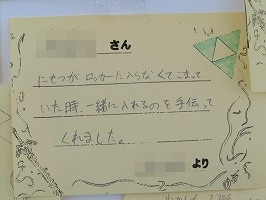 さん
にもつがロッカーに入らなくてこまって
いた時、一緒に入れるのを手伝って
くれました。
より